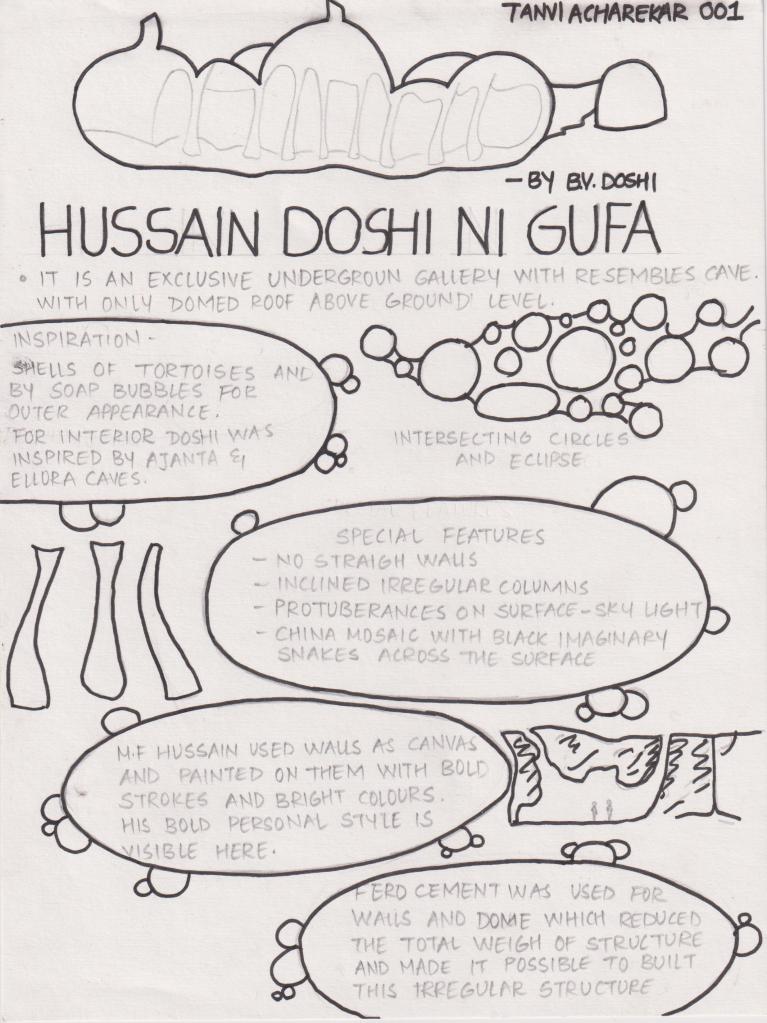 TANVI ACHAREKAR 001
- BY B.V. DOSHI
HUSSAIN DOSHI NI GUFA
• IT IS AN EXCLUSIVE UNDERGROUN GALLERY WITH RESEMBLES CAVE.
WITH ONLY DOMED ROOF ABOVE GROUND LEVEL.
INSPIRATION -
SHELLS OF TORTOISES AND
BY SOAP BUBBLES FOR
OUTER APPEARANCE.
FOR INTERIOR DOSHI WAS
INSPIRED BY AJANTA &
ELLORA CAVES.
INTERSECTING CIRCLES
AND ECLIPSE
SPECIAL FEATURES
- NO STRAIGH WALLS
- INCLINED IRREGULAR COLUMNS
- PROTUBERANCES ON SURFACE-SKY LIGHT
- CHINA MOSAIC WITH BLACK IMAGINARY
SNAKES ACROSS THE SURFACE
M.F HUSSAIN USED WALLS AS CANVAS
AND PAINTED ON THEM WITH BOLD
STROKES AND BRIGHT COLOURS.
HIS BOLD PERSONAL STYLE IS
VISIBLE HERE.
FERO CEMENT WAS USED FOR
WALLS AND DOME WHICH REDUCED
THE TOTAL WEIGH OF STRUCTURE
AND MADE IT POSSIBLE TO BUILT
THIS IRREGULAR STRUCTURE